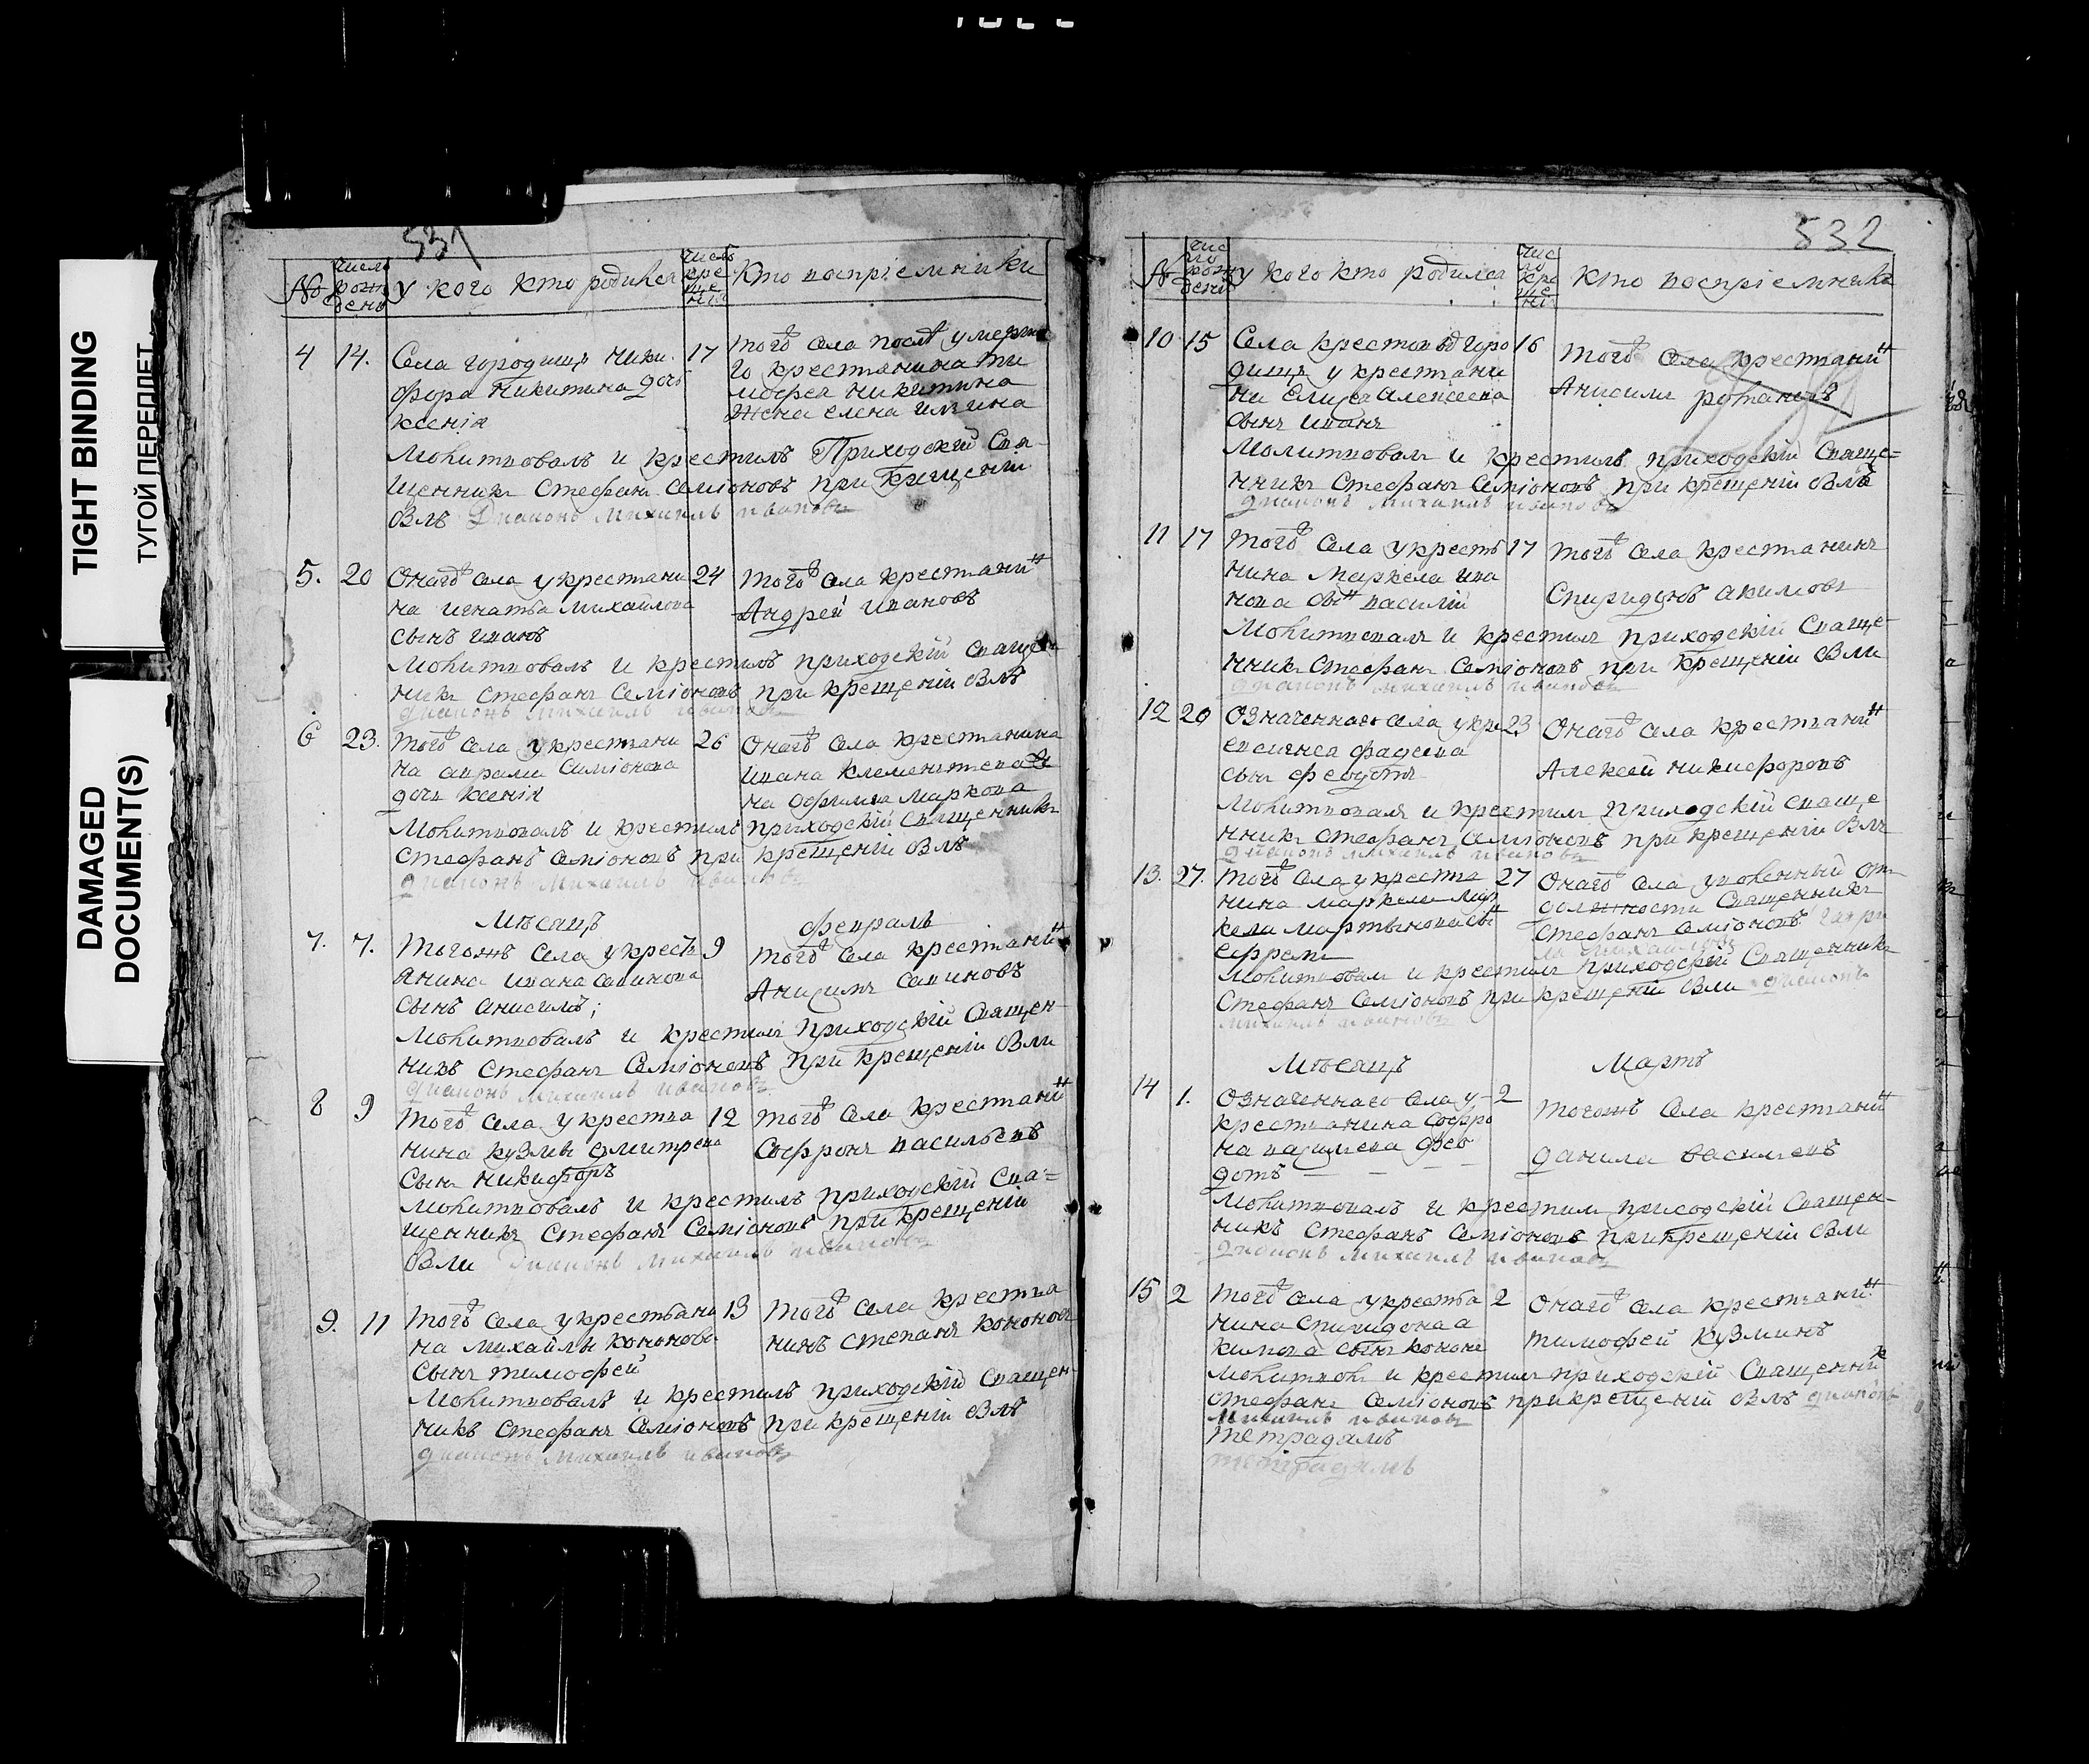 TIGHT BINDING
ТУГОЙ ПЕРЕПЛЕТ
DAMAGED
DOCUMENT(S)
531
№
число
рож
дени
у кого кто родился
число
кре
ще
нія
Кто воспріемники
4 14. Села городищъ Ники
фора Никитина дочь
ксенія
17 того села послѣ умерша
го крестьянина Ти
мофея Никитина
жена елена
Молитвовалъ и крестилъ Приходскій Свя
щенникъ Стефанъ Семіоновъ при крещеніи
былъ Диаконъ Михаилъ ивановъ
5. 20 Онаго села у крестьяни
на игнатья михайлова
сынъ иванъ
24 того села крестьянинъ
Андрей ивановъ
Молитвовалъ и крестилъ приходскій свяще
никъ Стефанъ Семіоновъ при крещеніи былъ
диаконъ михаилъ ивановъ
6 23. того села у крестьяни
на аврама Семіонова
дочь ксенія
26 Онаго села крестьянина
ивана клементьева
на Маркова
Молитвовалъ и крестилъ приходскій Священникъ
Стефанъ Семіоновъ при крещеніи былъ
диаконъ михаилъ ивановъ
Мѣсяцъ февраль
7. 7. тогожъ села у кресть
янина ивана савинова
сынъ анисимъ;
9 того села крестьянинъ
Анисимъ савиновъ
Молитвовалъ и крестилъ приходскій Священ
никъ Стефанъ Семіоновъ при крещеніи были
диаконъ михаилъ ивановъ
8 9 того села у крестья
нина кузмы дмитрева
сынъ никифоръ
12 того села крестьянинъ
Софронъ васильевъ
Молитвовалъ и крестилъ приходскій Свя=
щенникъ Стефанъ Семіоновъ при крещеніи
были диаконъ михаилъ ивановъ
9. 11 того села у крестьяни
на михайлы кононова
сынъ тимофей
13 того села крестья
нинъ степанъ кононовъ
Молитвовалъ и крестилъ приходскій Священ
никъ Стефанъ Семіоновъ при крещеніи былъ
диаконъ михаилъ ивановъ
532
№
чис
ло
рож
дені
у кого кто родился
чис
ло
кре
ще
ні
кто воспріемника
10 15 Села крестовод горо
дищъ у крестьяни
на Алексеева
сынъ иванъ
16 того села крестьянинъ
Анисимъ романовъ
Молитвовалъ и крестилъ приходскій Свяще=
нникъ Стефанъ Семіоновъ при крещеніи былъ
диаконъ михаилъ ивановъ
11 17 того села у кресть
нина Маркела ива
нова сынъ василій
17 того села крестьянинъ
Спиридонъ акимовъ
Молитвовалъ и крестилъ приходскій Свяще
нникъ Стефанъ Семіоновъ при крещеніи были
диаконъ михаилъ ивановъ
12 20 Означеннаго села у кре
фадеева
сынъ федотъ
23 Онаго села крестьянинъ
Алексей никифоровъ
Молитвовалъ и крестилъ приходскій свяще
нникъ Стефанъ Семіоновъ при крещеніи былъ
диаконъ михаилъ ивановъ
13. 27. того села у крестья
нина маркела мар
кела мартынова сынъ
ефремъ
27 Онаго села уволенный от
должности Священникъ
Стефанъ Семіоновъ
Молитвовалъ и крестилъ приходскій Священникъ
Стефанъ Семіоновъ при крещеніи были диаконъ
михаилъ ивановъ
Мѣсяцъ Мартъ
14 1. Означеннаго села у
крестьянина софро
на василева фео
дотъ
2 тогожъ села крестьянинъ
данила василевъ
Молитвовалъ и крестилъ приходскій Священ
никъ Стефанъ Семіоновъ при крещеніи были
диаконъ михаилъ ивановъ
15 2 того села у крестья
нина спиридона а
кимова сынъ кононъ
2 Онаго села крестьянинъ
тимофей кузминъ
Молитвовалъ и крестилъ приходскій Священникъ
Стефанъ Семіоновъ при крещеніи былъ диаконъ
михаилъ ивановъ
тетрадамъ
тетрадямъ